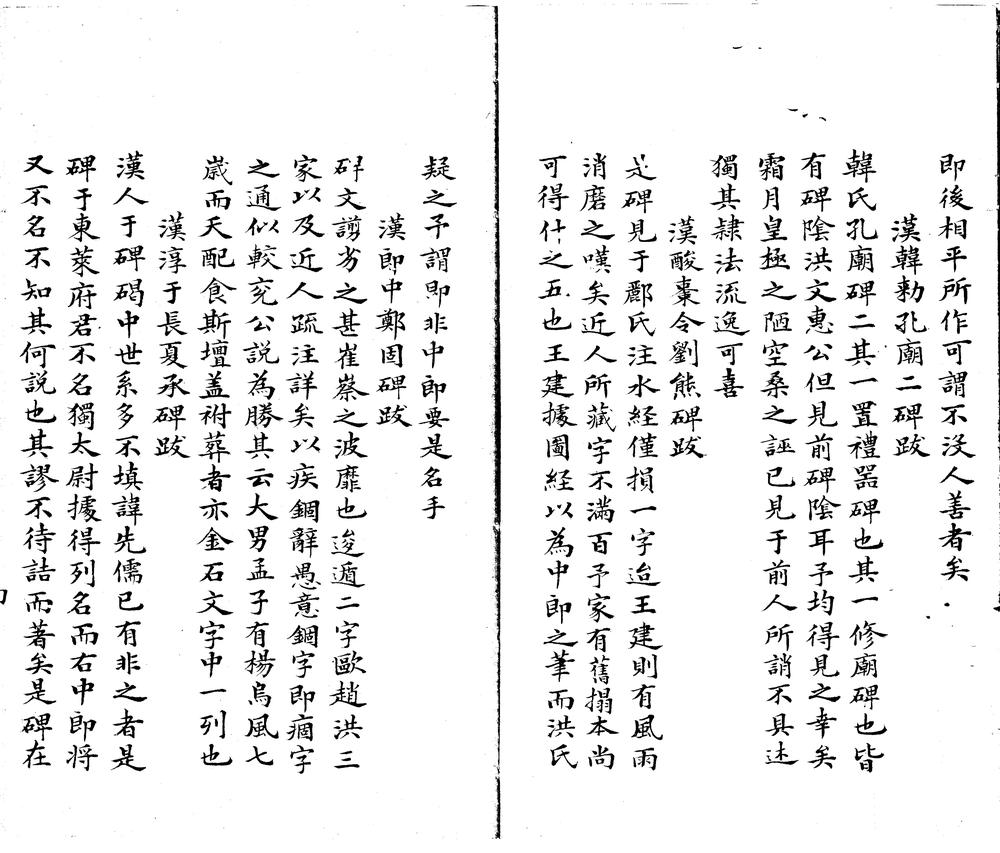 即後相平所作可謂不沒人善者矣
漢韓勑孔廟二碑跋
韓氏孔廟碑二其一置禮器碑也其一修廟碑也皆
有碑陰洪文惠公但見前碑陰耳予均得見之幸矣
霜月皇極之陋空桑之誣已見于前人所誚不具述
獨其隸法流逸可喜
漢酸棗令劉熊碑跋
是碑見于酈氏注水経僅損一字迨王建則有風雨
消磨之嘆矣近人所藏字不滿百予家有舊搨本尚
可得什之五也王建據圖経以為中郎之筆而洪氏
疑之予謂即非中郎要是名手
漢郎中鄭固碑跋
碑文謭劣之甚崔蔡之波靡也逡遁二字歐趙洪三
家以及近人疏注詳矣以疾錮辭愚意錮字即痼字
之通似較兖公説為勝其云大男孟子有楊烏風七
歲而夭配食斯壇盖祔葬者亦金石文字中一列也
漢淳于長夏承碑跋
漢人于碑碣中世系多不填諱先儒已有非之者是
碑于東萊府君不名獨太尉掾得列名而右中郎将
又不名不知其何説也其謬不待詰而著矣是碑在